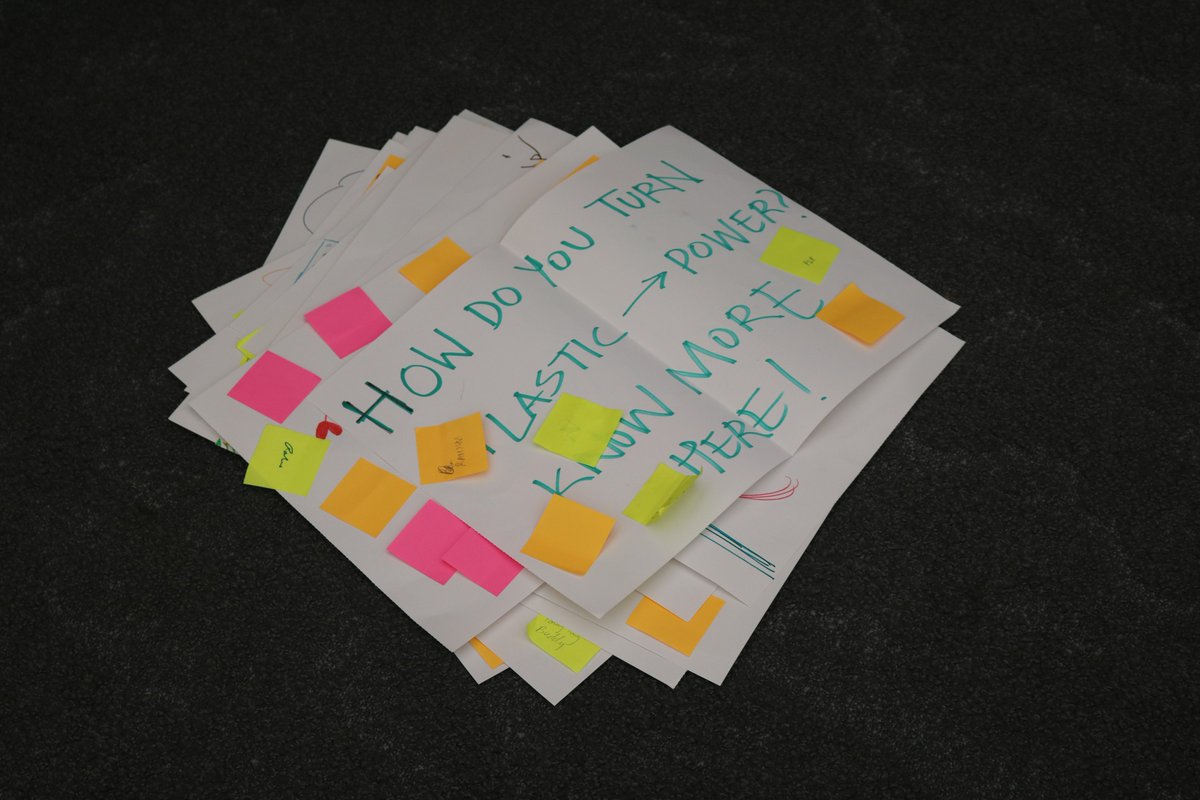 HOW DO YOU TURN
PLASTIC → POWER?
KNOW MORE
HERE!